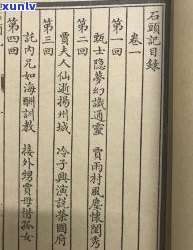 xunlv
石頭記目錄
卷一
第一回
甄士隱夢幻識通靈 賈雨村風塵懷閨秀
第二回
賈夫人仙逝揚州城 冷子興演說榮國府
第三回
託內兄如海酬訓教 接外甥賈母惜孤女
第四回